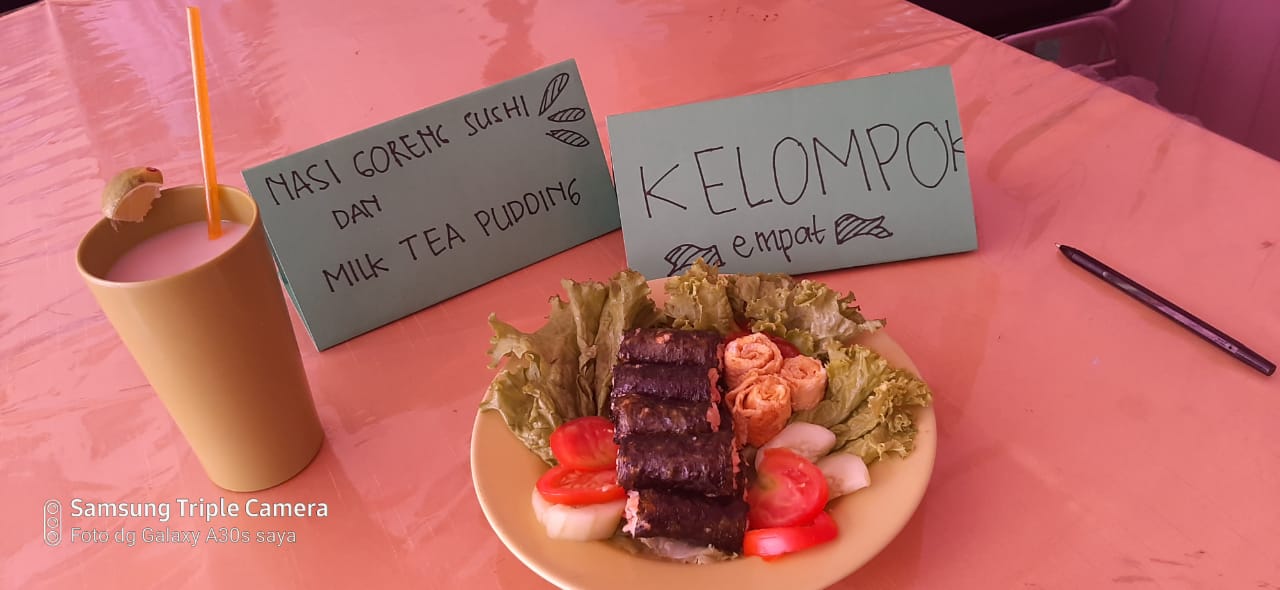 NASI GORENG SUSHI
DAN
MILK TEA PUDDING
KELOMPOK
empat
Samsung Triple Camera
Foto dg Galaxy A30s saya